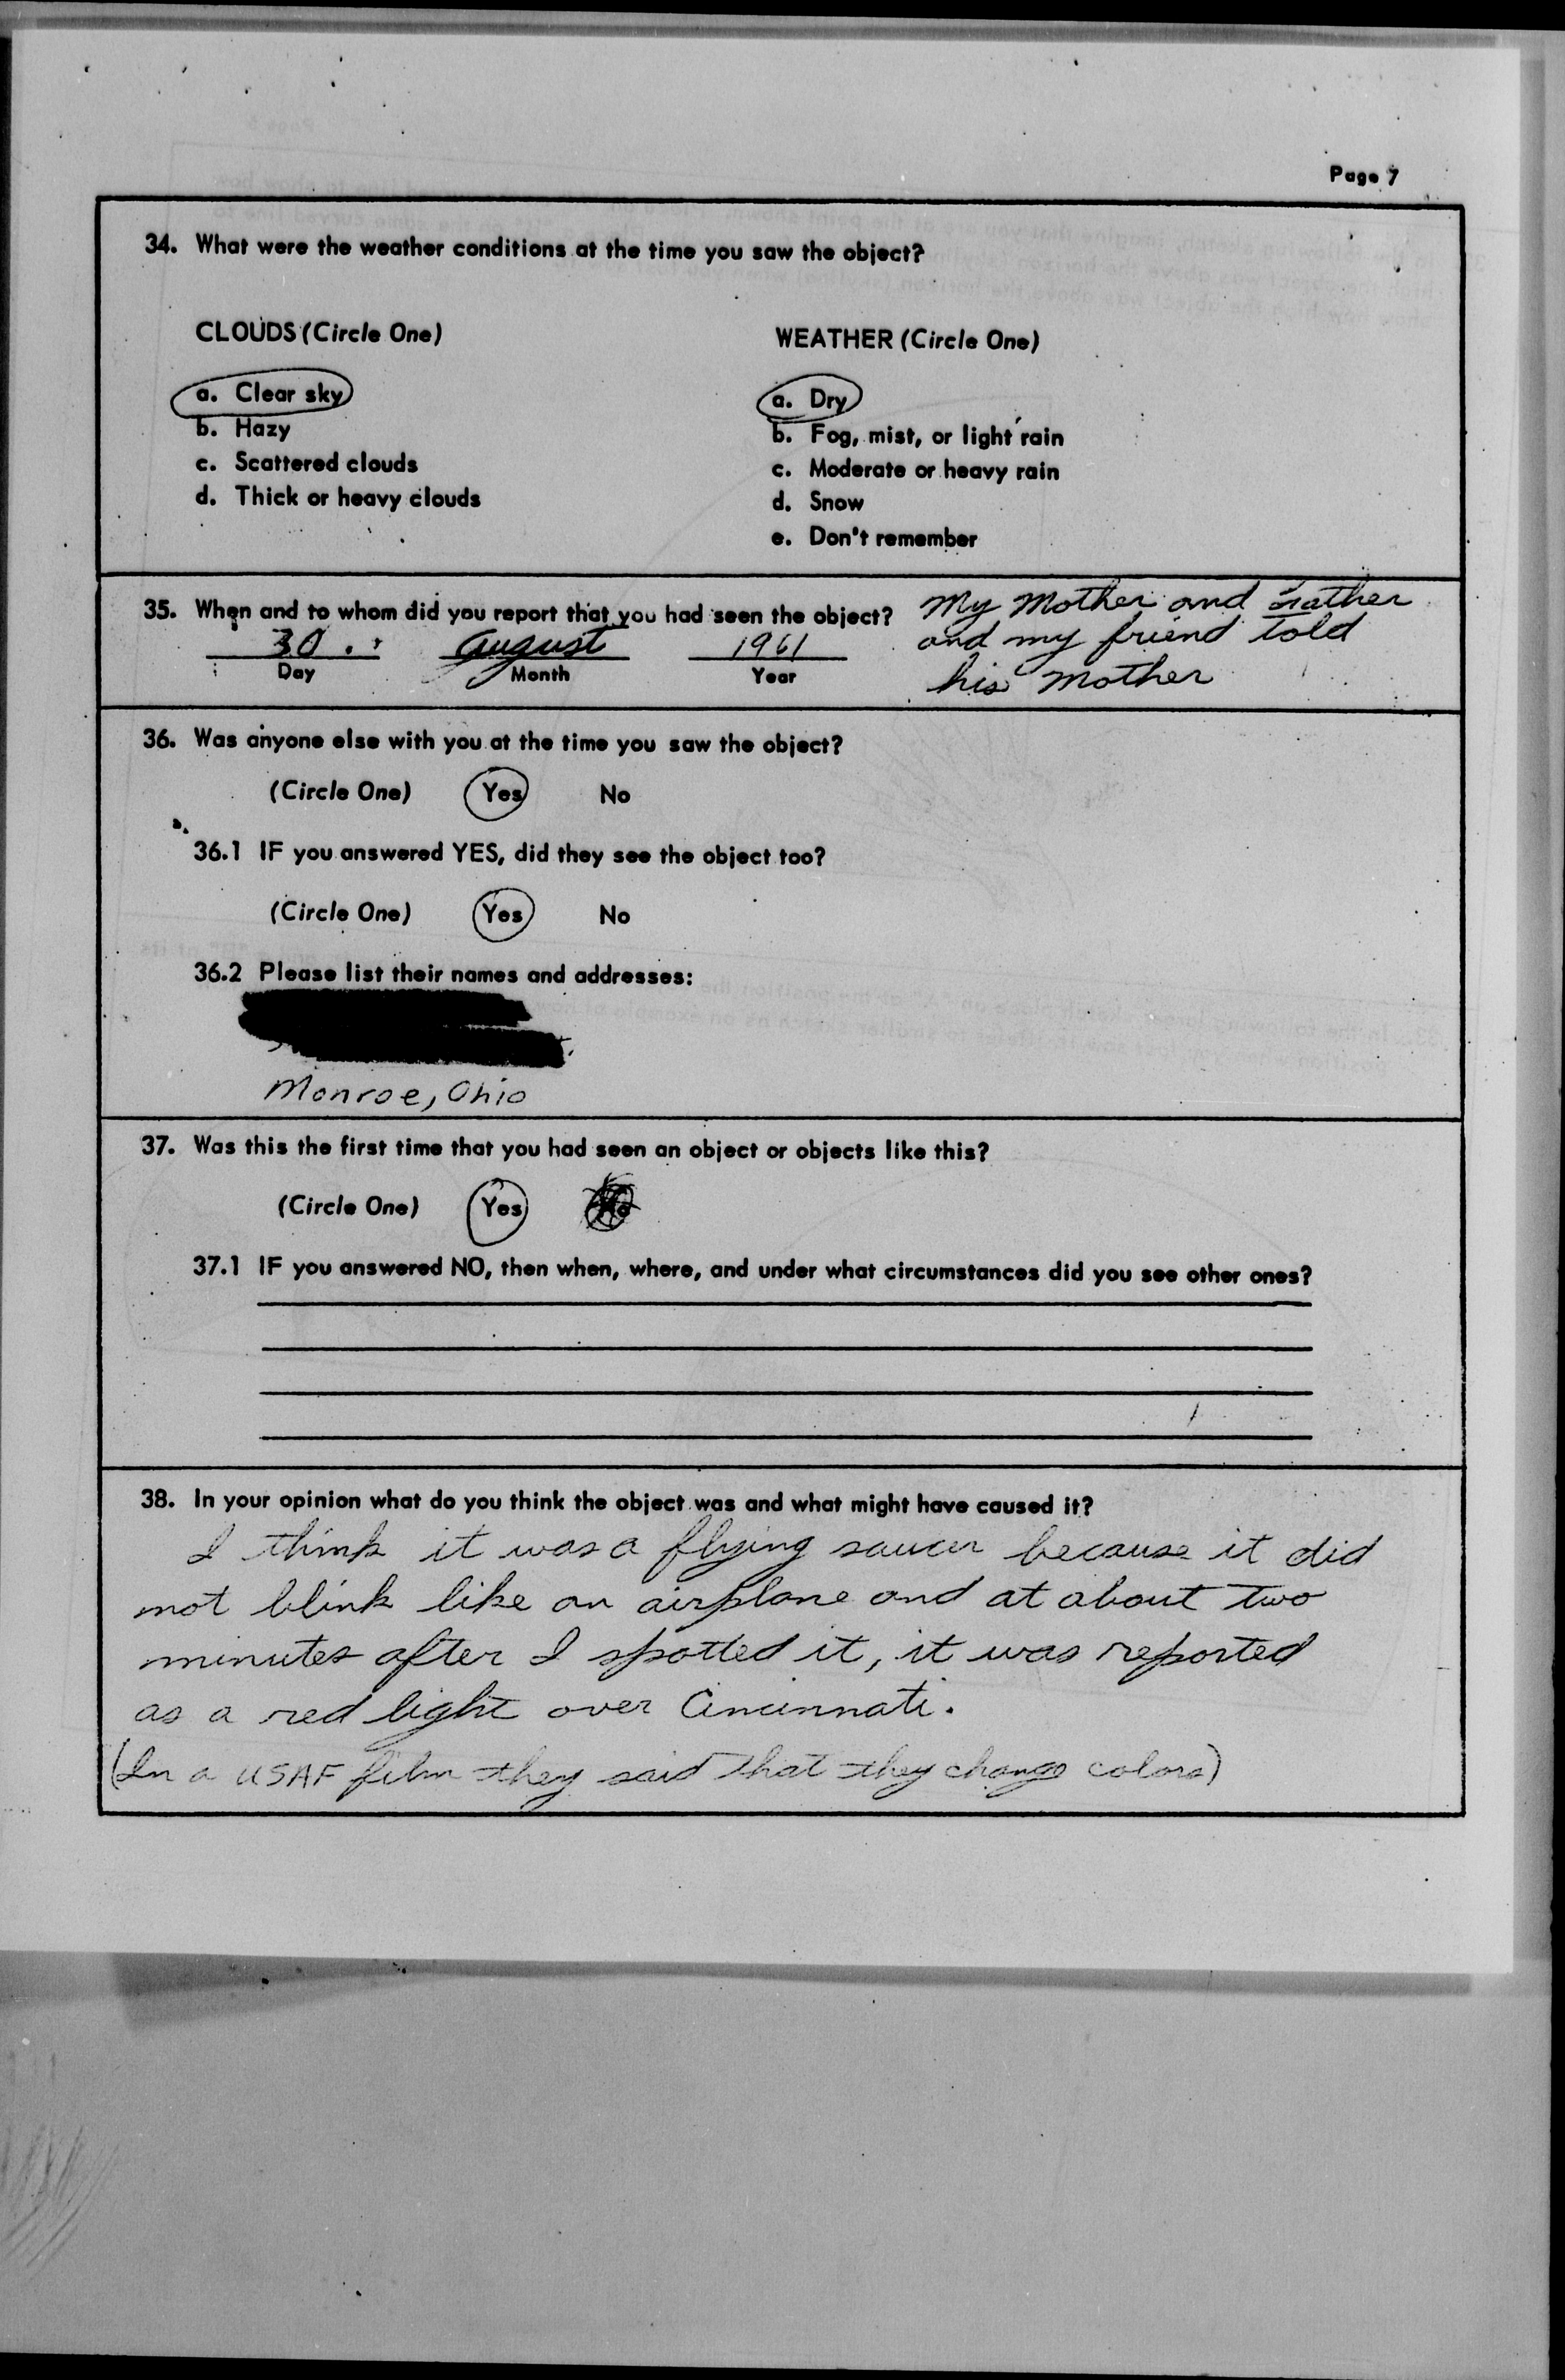 Page 7
34. What were the weather conditions at the time you saw the object?
CLOUDS (Circle One)
a. Clear sky
b. Hazy
c. Scattered clouds
d. Thick or heavy clouds
WEATHER (Circle One)
a. Dry
b. Fog, mist, or light rain
c. Moderate or heavy rain
d. Snow
e. Don't remember
35. When and to whom did you report that you had seen the object?
30 August 1961
Day Month Year
My Mother and Father
and my friend told
his Mother
36. Was anyone else with you at the time you saw the object?
(Circle One) Yes No
36.1 IF you answered YES, did they see the object too?
(Circle One) Yes No
36.2 Please list their names and addresses:
Monroe, Ohio
37. Was this the first time that you had seen an object or objects like this?
(Circle One) Yes
37.1 IF you answered NO, then when, where, and under what circumstances did you see other ones?
38. In your opinion what do you think the object was and what might have caused it?
I think it was a flying saucer because it did
not blink like an airplane and at about two
minutes after I spotted it, it was reported
as a red light over Cincinnati.
(In a USAF film they said that they change colors)